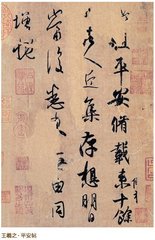 此粗平安脩載來十餘
日諸人近集存想明日
當復悉來無由同
增慨
王羲之·平安帖